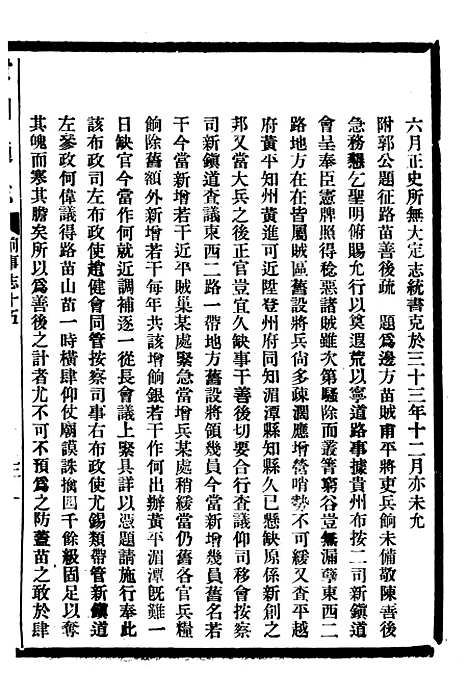 六月正史所無大定志統書克於三十三年十二月亦未允
附郭公題征路苗善後疏　題爲邊方苗賊甫平將吏兵餉未備敬陳善後
急務懇乞聖明俯賜允行以奠遐荒以寧道路事據貴州布按二司新鎭道
會呈奉臣憲牌照得稔惡諸賊雖次第騷除而叢箐窮谷豈無漏孽東西二
路地方在在皆屬賊區舊設將兵尙多疎濶應增營哨勢不可緩又查平越
府黃平知州黃進可近陞登州府同知湄潭縣知縣久已懸缺原係新創之
邦又當大兵之後正官豈宜久缺事干善後切要合行查議仰司移會按察
司新鎭道查議東西二路一帶地方舊設將領幾員今當新增幾員舊名若
干今當新增若干近平賊巢某處緊急當增兵某處稍緩當仍舊各官兵糧
餉除舊額外新增若干每年共該增餉銀若干作何出辦黃平湄潭旣難一
日缺官今當作何就近調補逐一從長會議上緊具詳以憑題請施行奉此
該布政司左布政使趙健會同管按察司事右布政使尤錫類帶管新鎭道
左參政何偉議得路苗山苗一時橫肆仰仗廟謨誅擒四千餘級固足以奪
其魄而寒其膽矣所以爲善後之計者尤不可不預爲之防蓋苗之敢於肆
前事志十五